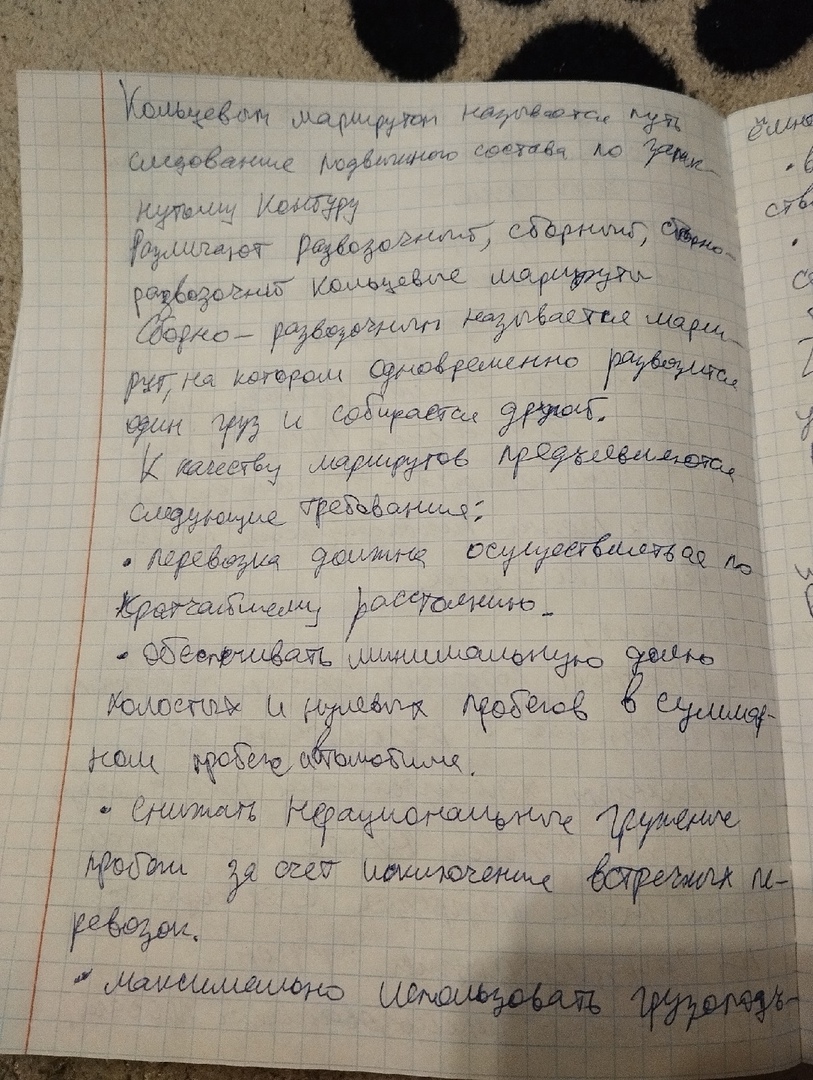 Кольцевым маршрутом называется путь
следование подвижного состава по замк-
нутому контуру
Различают развозочный, сборный, сборно-
развозочный кольцевые маршруты
Сборно - развозочным называется марш-
рут, на котором одновременно развозится
один груз и собирается другой.
К качеству маршрутов предъевляются
следующие требование:
• перевозка должна осуществляться по
кратчайшему расстоянию.
• Обеспечивать минимальную долю
холостых и нулевых пробегов в суммар-
ном пробеге автомобиля.
• снижать нерациональные груженые
пробеги за счет исключение встречных пе-
ревозок.
• максимально использовать грузоподъ-
ёмно
• в
ств
•